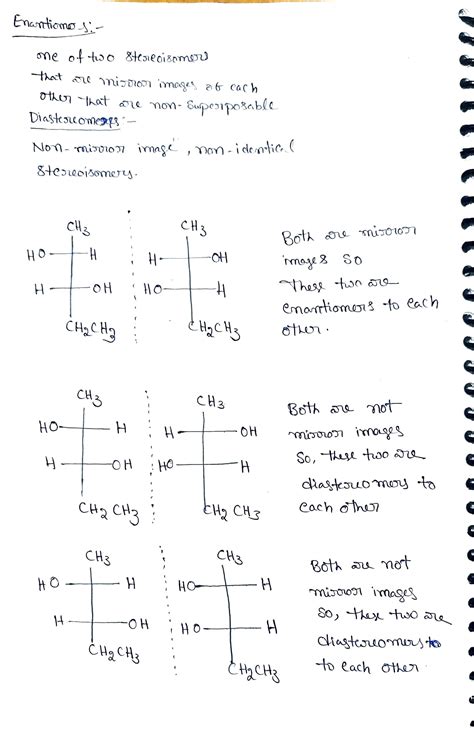 Enantiomers:-
one of two stereoisomers
that are mirror images of each
other that are non-superposable
Diastereomers:-
Non-mirror image, non-identical
stereoisomers.
CH3 CH3
HO H H OH
H OH HO H
CH2CH3 CH2CH3
Both are mirror
images so
these two are
enantiomers to each
other.
CH3 CH3
HO H H OH
H OH HO H
CH2CH3 CH2CH3
Both are not
mirror images
So, these two are
diastereomers to
each other
CH3 CH3
HO H HO H
H OH HO H
CH2CH3 CH2CH3
Both are not
mirror images
so, these two are
diastereomers to
to each other.